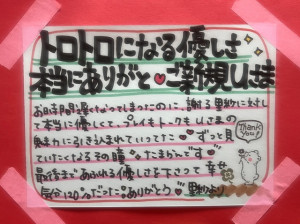 トロトロになる優しさ
本当にありがと♥ご新規Uさま
お時間遅くなってしまったのに、謝る里紗に対し
て本当に優しくて、プレイもトークもUさまの
魅力に引き込まれていってた♥ずっと見
ていたくなるその瞳、たまらんです
最後まであふれる優しさ下さって幸せ
気分120%だった。ありがとう♥
Thank You!